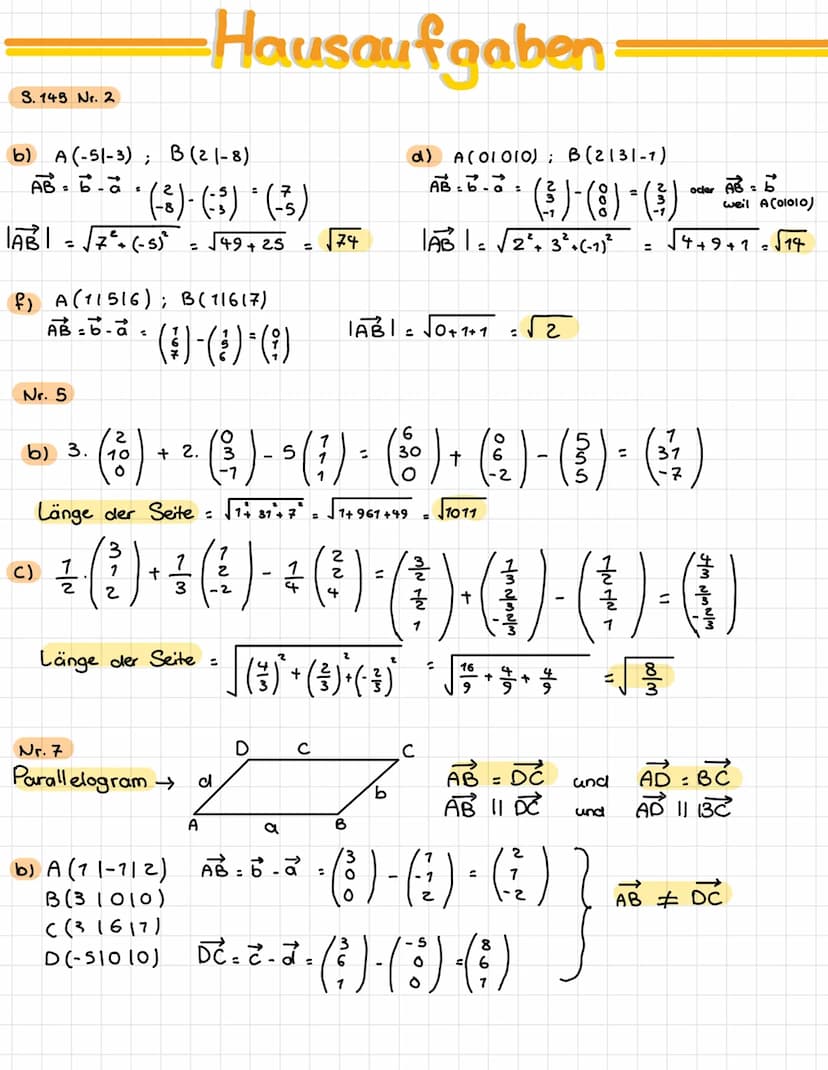 Hausaufgaben
S. 145 Nr. 2
b) A(-5|-3) ; B(2|-8)
AB = b - a = (2 -8) - (-5 -3) = (7 -5)
|AB| = √7² + (-5)² = √49 + 25 = √74
d) A(0|0|0) ; B(2|3|-1)
AB = b - a = (2 3 -1) - (0 0 0) = (2 3 -1) oder AB = b
weil A(0|0|0)
|AB| = √2² + 3² + (-1)² = √4 + 9 + 1 = √14
f) A(1|5|6) ; B(1|6|7)
AB = b - a = (1 6 7) - (1 5 6) = (0 1 1) |AB| = √0 + 1 + 1 = √2
Nr. 5
b) 3 · (2 10 0) + 2 · (0 3 -1) - 5 (1 1 1) = (6 30 0) + (0 6 -2) - (5 5 5) = (1 31 -7)
Länge der Seite = √1² + 31² + 7² = √1 + 961 + 49 = √1011
c) 1/2 · (3 1 2) + 1/3 (1 2 -2) - 1/4 (2 2 4) = (3/2 1/2 1) + (1/3 2/3 -2/3) - (1/2 1/2 1) = (4/3 2/3 -2/3)
Länge der Seite = √(4/3)² + (2/3)² + (-2/3)² = √16/9 + 4/9 + 4/9 = √8/3
Nr. 7
Parallelogram →
D c C
d b
A a B
AB = DC und AD = BC
AB || DC und AD || BC
b) A(1|-1|2) AB = b - a = (3 0 0) - (1 -1 2) = (2 1 -2)
B(3|0|0)
C(3|6|1)
D(-5|0|0) DC = c - d = (3 6 1) - (-5 0 0) = (8 6 1)
AB ≠ DC